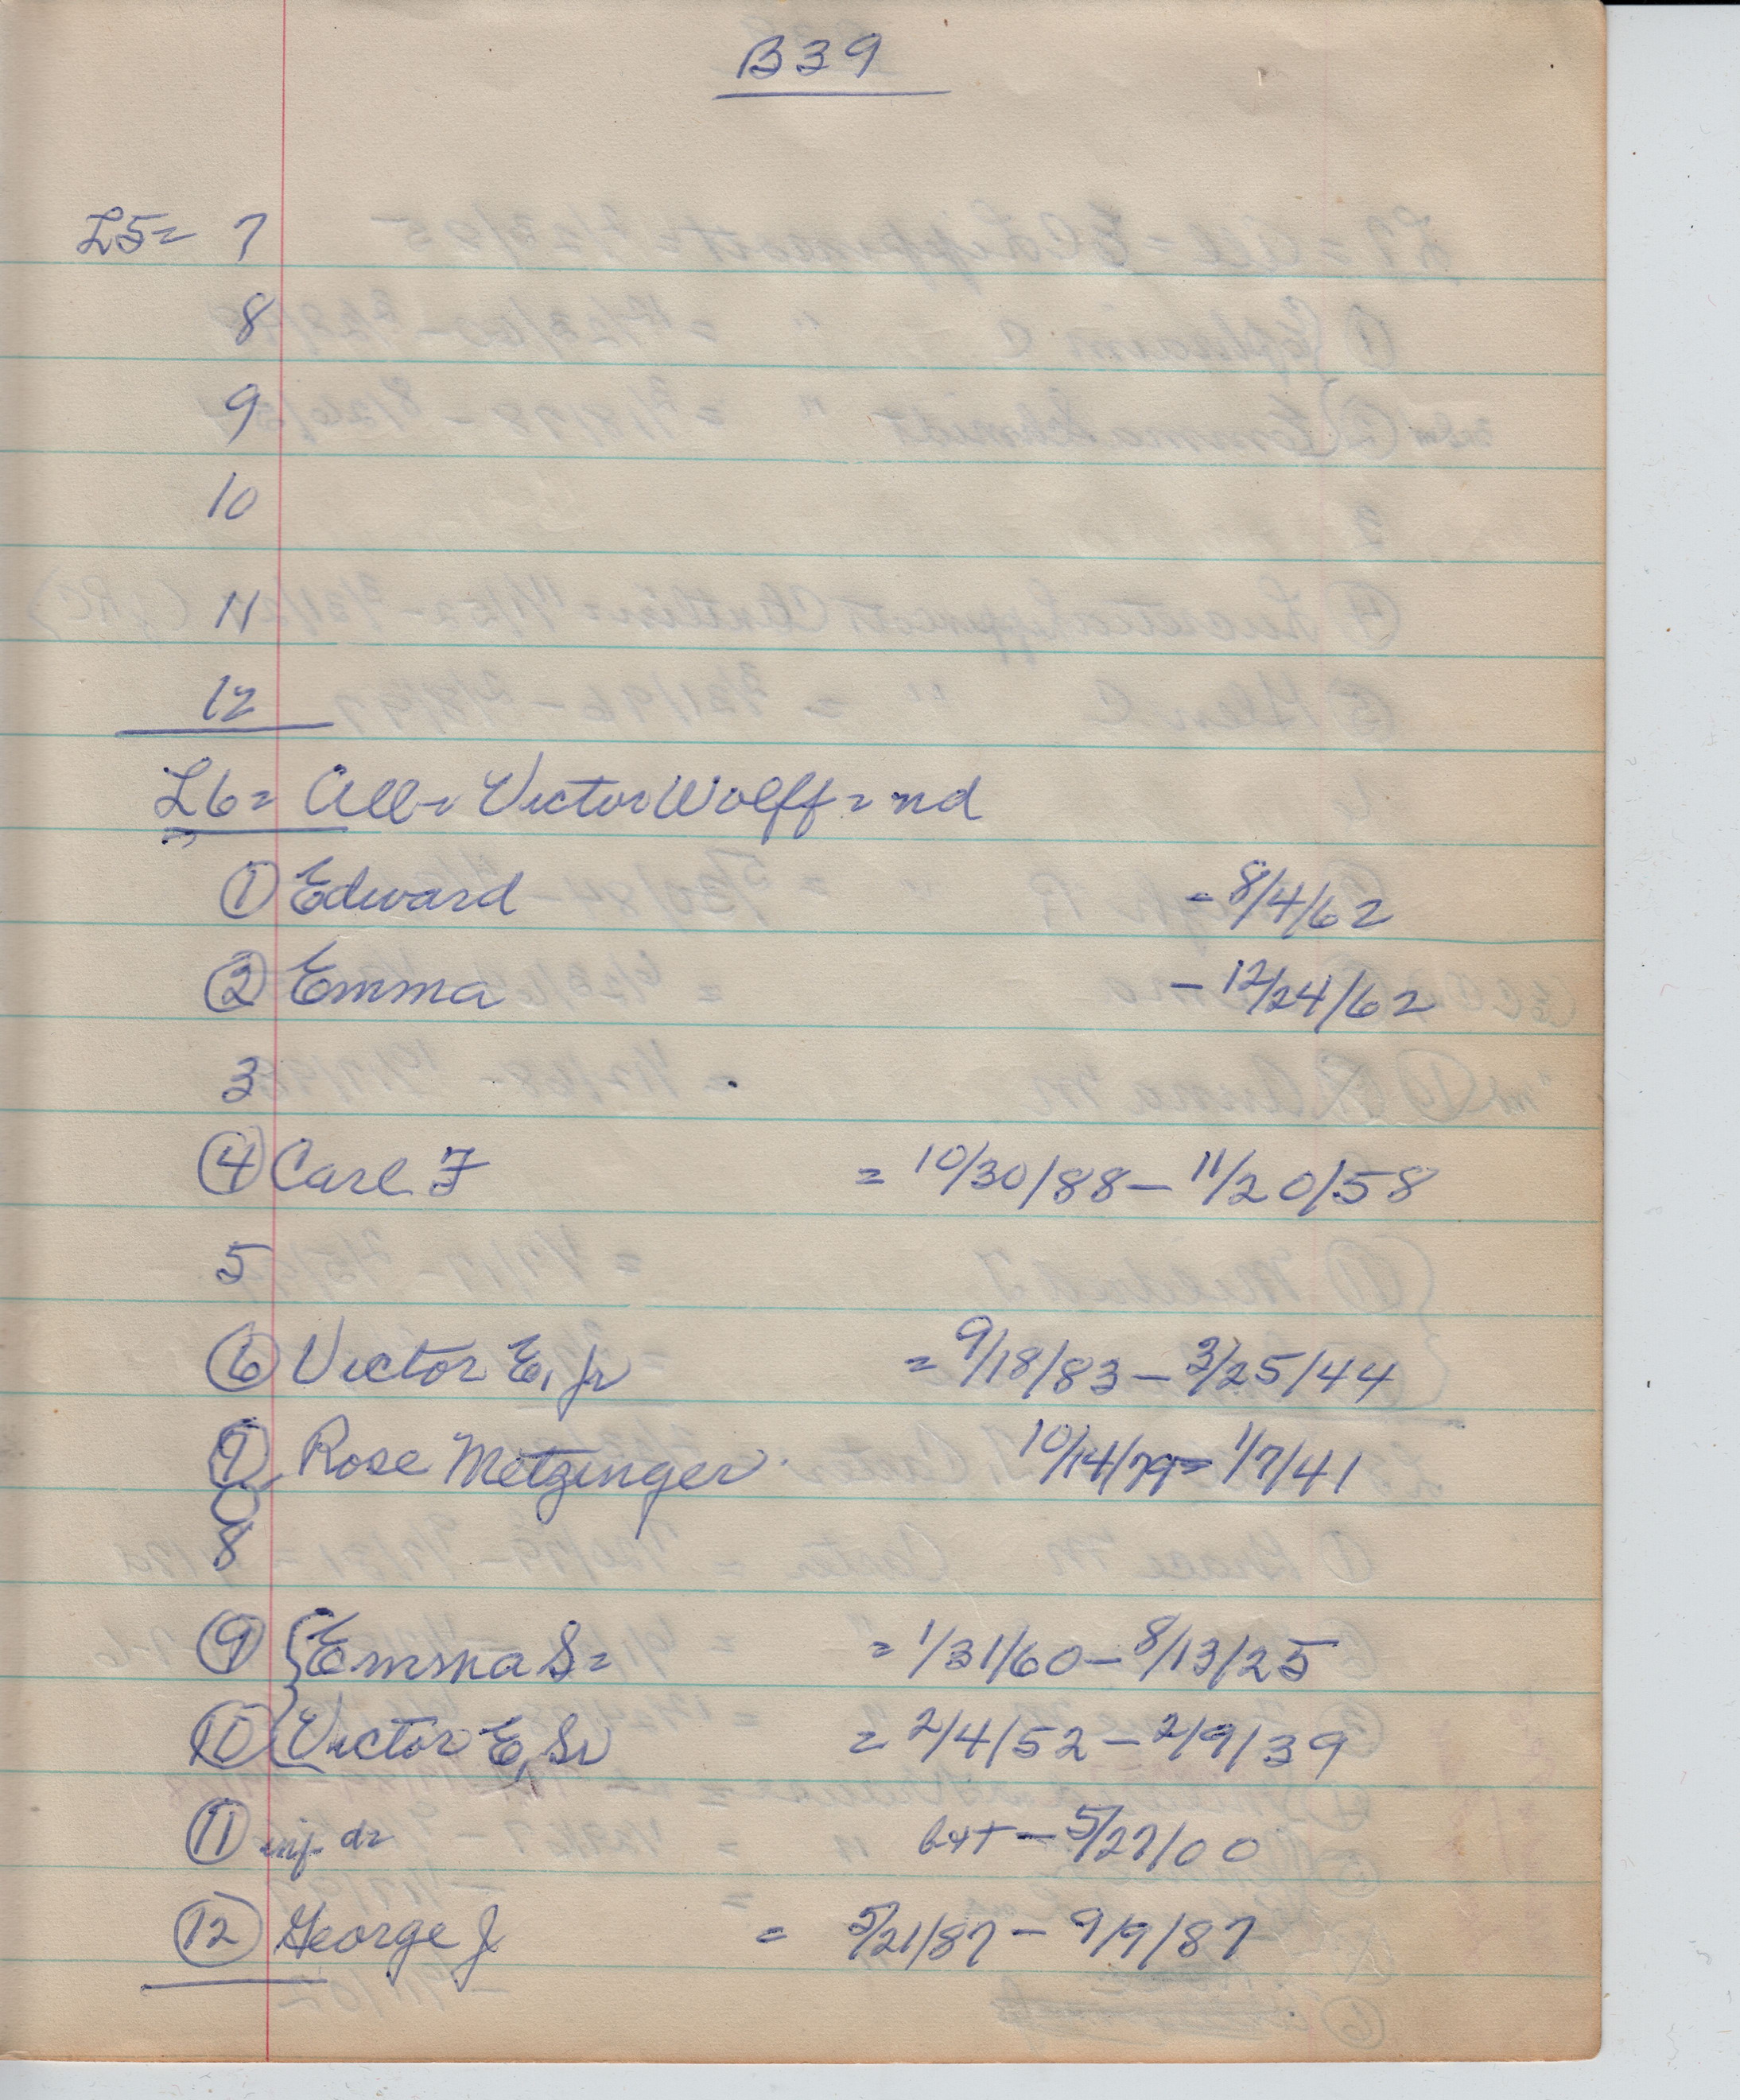 B39
L5= 7
8
9
10
11
12
L6= All= Victor Wolff = nd
① Edward - 8/4/62
② Emma - 12/24/62
3
④ Carl F = 10/30/88 - 11/20/58
5
⑥ Victor E, Jr = 9/18/83 - 3/25/44
⑦ Rose Metzinger 10/14/79 = 1/7/41
8
⑨ {Emma S = = 1/31/60 - 8/13/25
⑩ {Victor E, Sr = 2/4/52 - 2/9/39
⑪ inf d= but - 5/27/00
⑫ George J = 5/21/87 - 9/9/87